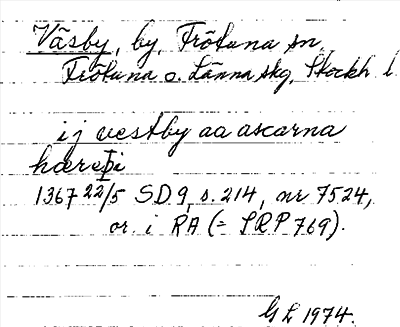 Väsby, by, Frötuna sn,
Frötuna o. Länna skg, Stockh. l
ij vestby aa ascarna
hæreþi
1367 22/5 SD 9, s. 214, nr 7524,
or. i RA (= SRP 769).
GL 1974.